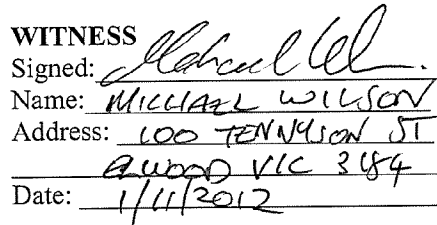 WITNESS
Signed: Michael Wilson
Name: MICHAEL WILSON
Address: 100 TENNYSON ST
ELWOOD VIC 3184
Date: 1/11/2012